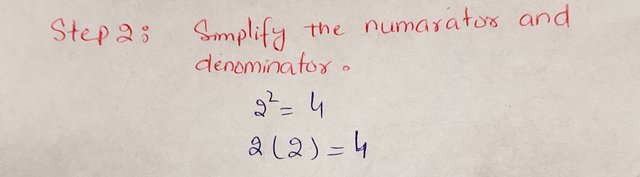 Step 2: Simplify the numarator and
denominator.
2² = 4
2(2) = 4